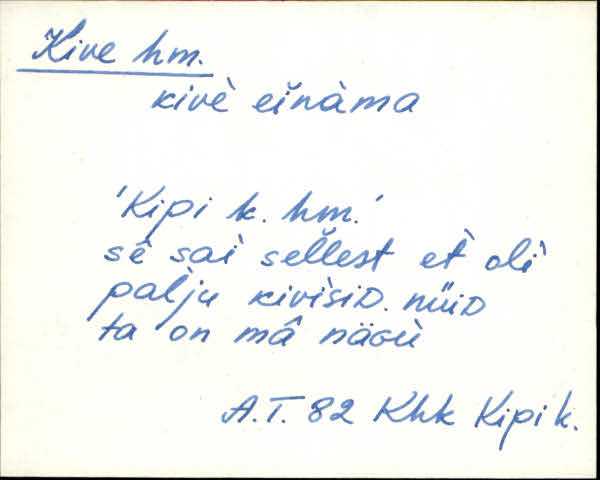 Kive hm.
kivè eǐnàma
'Kipi k. hm.'
sê saì sellest et̀ olì
palju kivìsiD. nüiD
ta on mâ näGù
A.T. 82 Khk Kipi k.